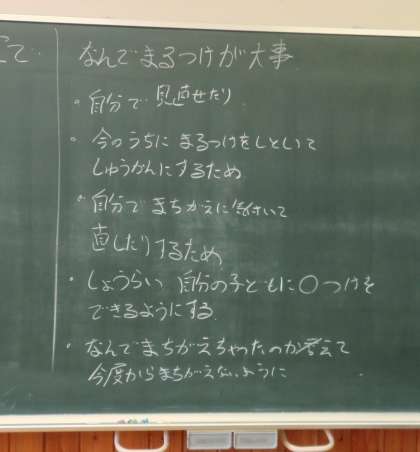 えて‥
なんでまるつけが大事
・自分で見直せたり
・今のうちにまるつけをしといて
しゅうかんにするため
・自分でまちがえに気付いて
直したりするため
・しょうらい自分の子どもに○つけを
できるようにする
・なんでまちがえちゃったのか考えて
今度からまちがえないように